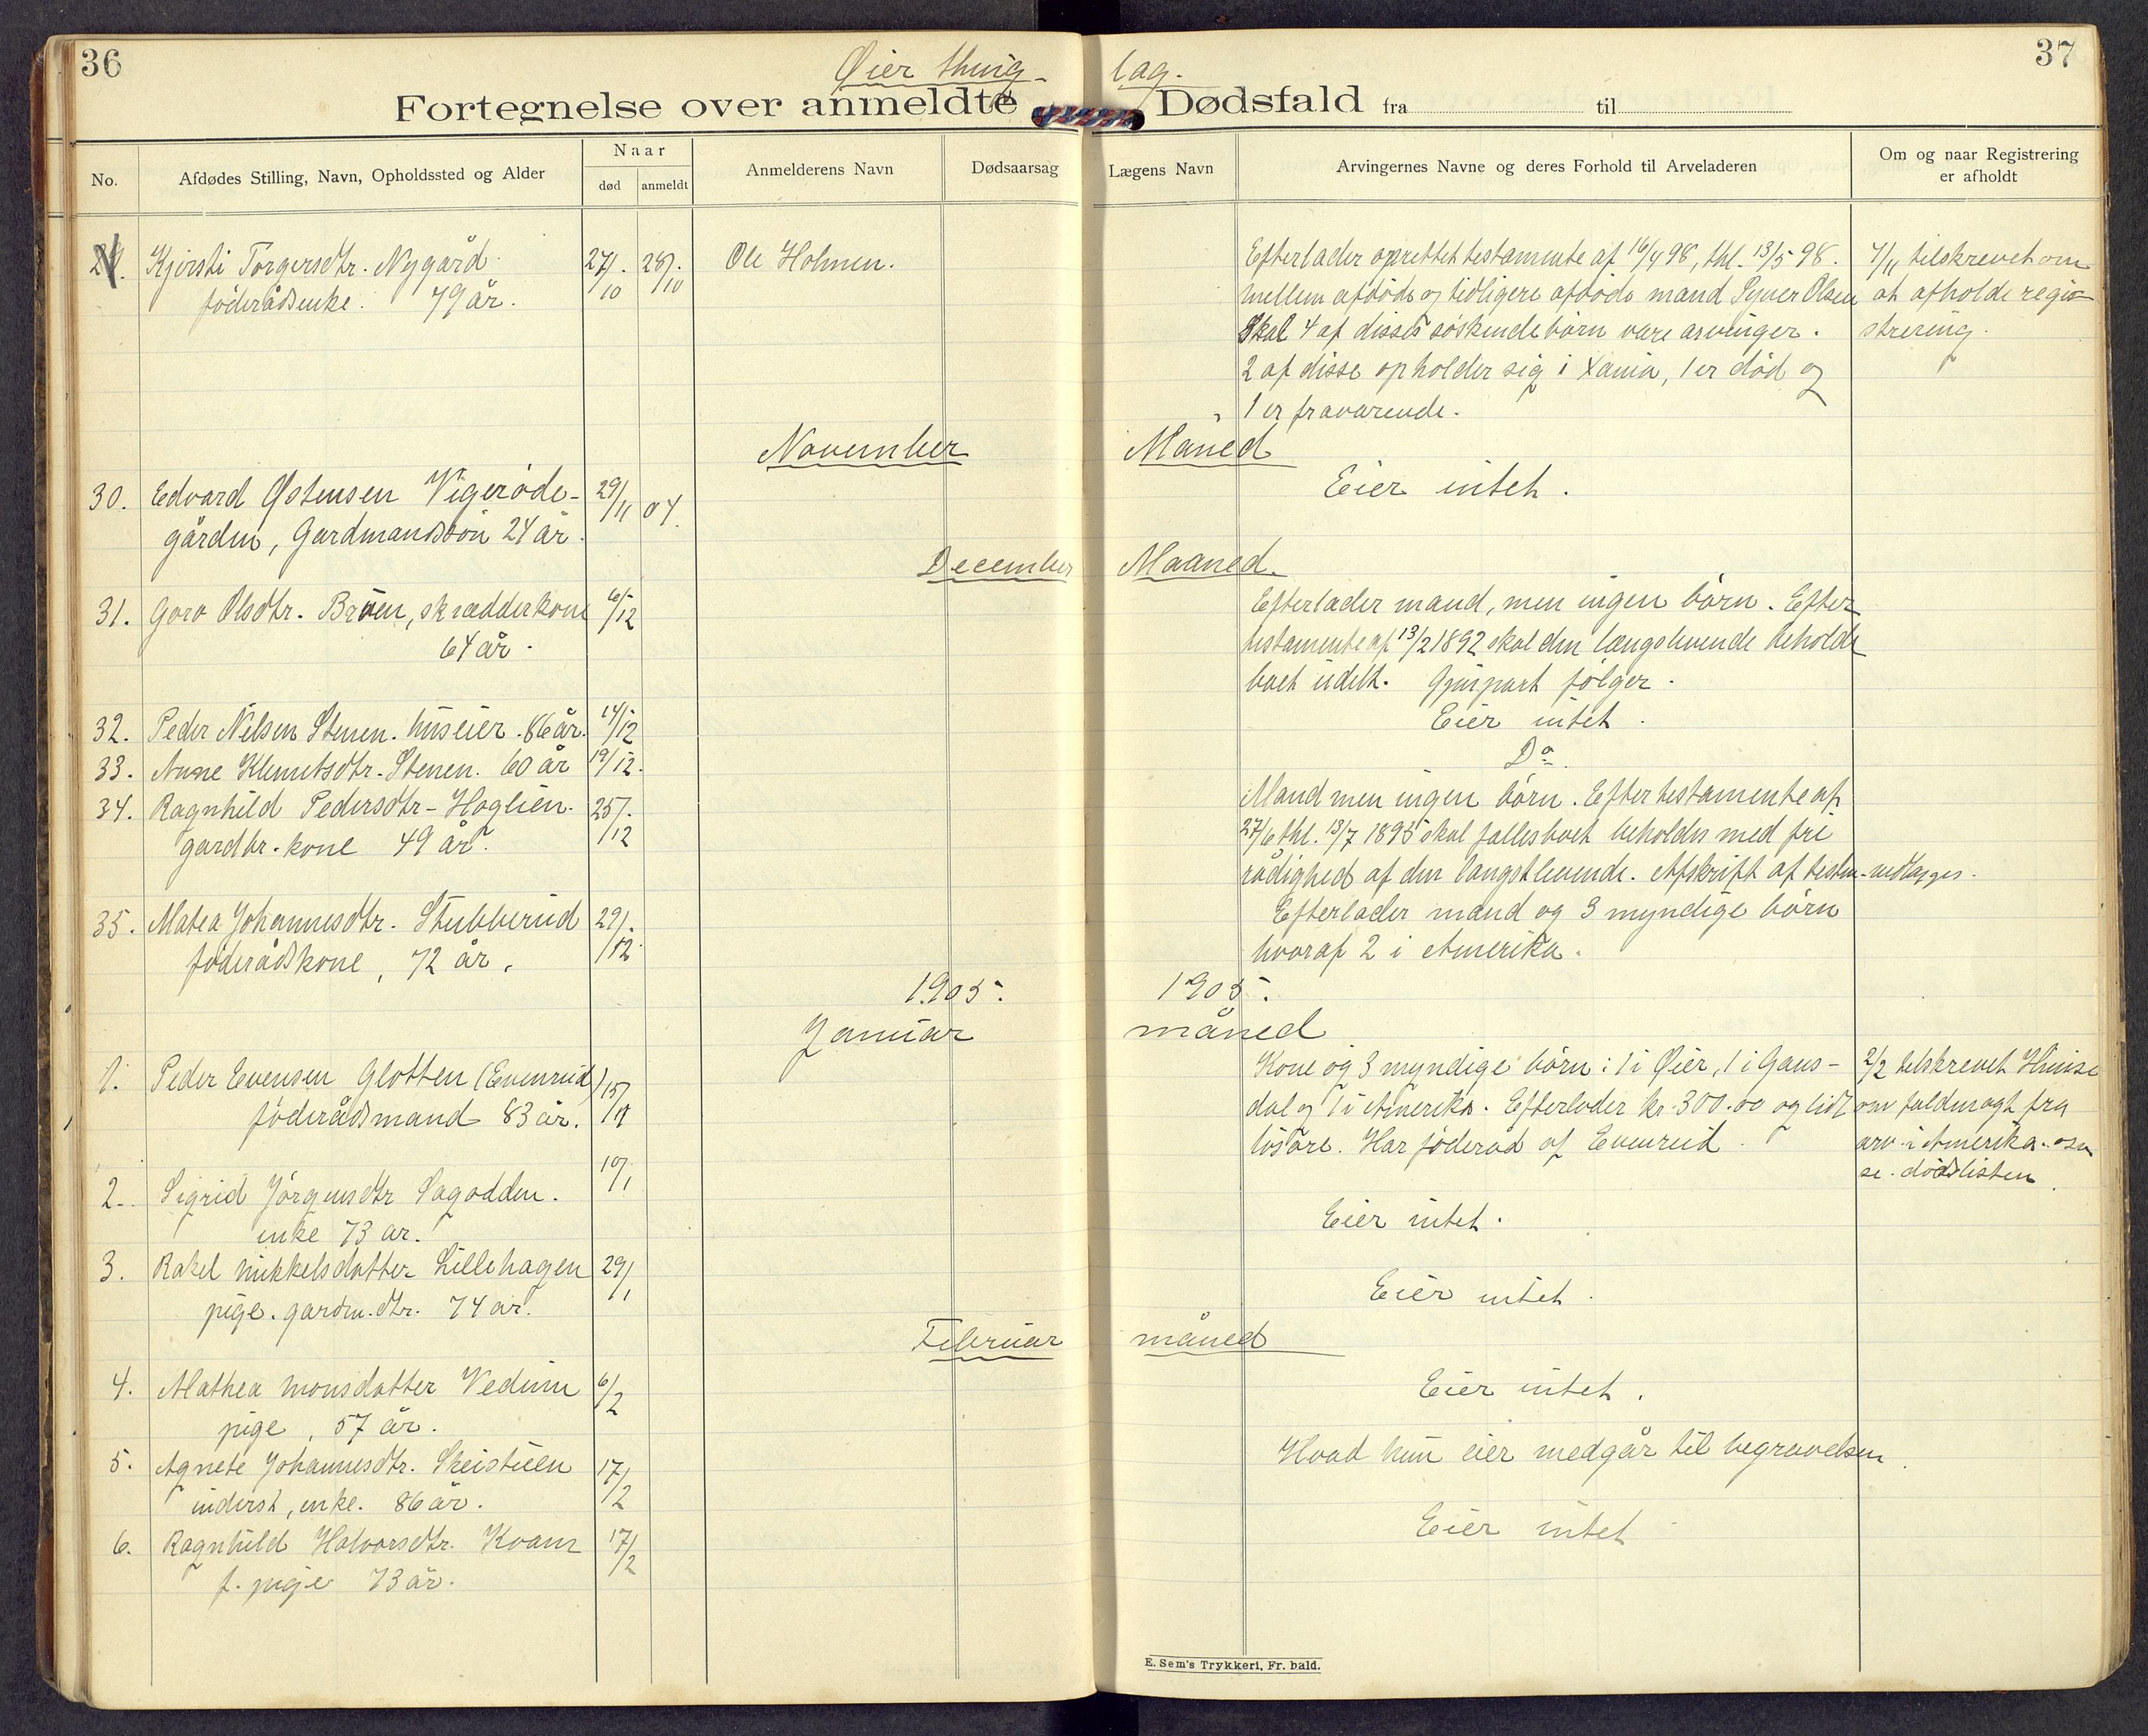 36
37
Øier thing-
lag.
Fortegnelse over anmeldte
Dødsfald fra til
No.
Afdødes Stilling, Navn, Opholdssted og Alder
Naar
død
anmeldt
Anmelderens Navn
Dødsaarsag
Lægens Navn
Arvingernes Navne og deres Forhold til Arveladeren
Om og naar Registrering
er afholdt
29. Kjersti Torgersdtr. Nygård 27/10 28/10 Ole Holmen.
föderådsenke. 79 år.
Efterlader oprettet testamente af 16/4 98, thl. 13/5 98.
mellem afdöde og tidligere afdöde mand Syver Olsen
skal 4 af disses söskendebörn være arvinger.
2 af disse opholder sig i Xania, 1 er död og
1 er fraværende.
7/11 tilskrevet om
at afholde regi-
strering.
November Måned
30. Edvard Østensen Vigeröde- 29/11 04.
gården, Gardmandssön 24 år.
Eier intet.
December Maaned.
31. Goro Olsdtr. Bröen, skrædderkone 6/12
64 år.
Efterlader mand, men ingen börn. Efter
testamente af 13/2 1892 skal den længstlevende beholde
boet udelt. Gjenpart fölger.
32. Peder Nilsen Stenen. huseier. 86 år. 14/12
Eier intet.
33. Anne Klemetsdtr. Stenen. 60 år 19/12.
Do.
34. Ragnhild Pedersdtr- Hoglien. 25/12
gardbr. kone 49 år.
Mand men ingen börn. Efter testamente af
27/6 thl. 13/7 1895 skal fællesboet beholdes med fri
rådighed af den længstlevende. Afskrift af testm. vedlægges.
35. Matea Johannesdtr. Stubberud 29/12.
föderådskone, 72 år.
Efterlader mand og 3 myndige börn
hvoraf 2 i Amerika.
1905. 1905.
Januar måned
1. Peder Evensen Glotten (Evenrud) 15/1
föderådsmand 83 år.
Kone og 3 myndige börn: 1 i Øier, 1 i Gaus-
dal og 1 i Amerika. Efterlader kr. 300.00 og lidt
lösöre. Har föderåd af Evenrud.
2/2 tilskrevet
om fuldmagt fra
arv. i Amerika.
se. dödslisten
2. Sigrid Jörgensdtr Sagodden. 10/1
enke 73 år.
Eier intet.
3. Rakel Mikkelsdatter Lillehagen 29/1
pige. gardm. dtr. 74 år.
Eier intet.
Februar måned
4. Mathea Monsdatter Vedum 6/2
pige, 57 år.
Eier intet.
5. Agnete Johannesdtr. Skeistuen 17/2
inderst, enke. 86 år.
Hvad hun eier medgår til begravelsen.
6. Ragnhild Halvorsdtr. Kvam 17/2
f. pige 73 år.
Eier intet
E. Sem's Trykkeri, Fr. hald.